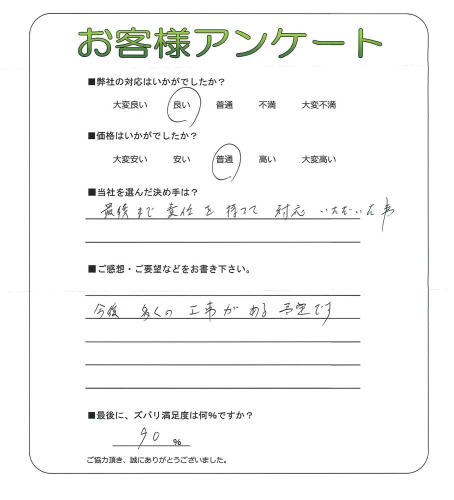 お客様アンケート
■弊社の対応はいかがでしたか?
大変良い 良い 普通 不満 大変不満
■価格はいかがでしたか?
大変安い 安い 普通 高い 大変高い
■当社を選んだ決め手は?
最後まで責任を持って対応いただいた事
■ご感想・ご要望などをお書き下さい。
今後多くの工事がある予定です
■最後に、ズバリ満足度は何%ですか?
90 %
ご協力頂き、誠にありがとうございました。